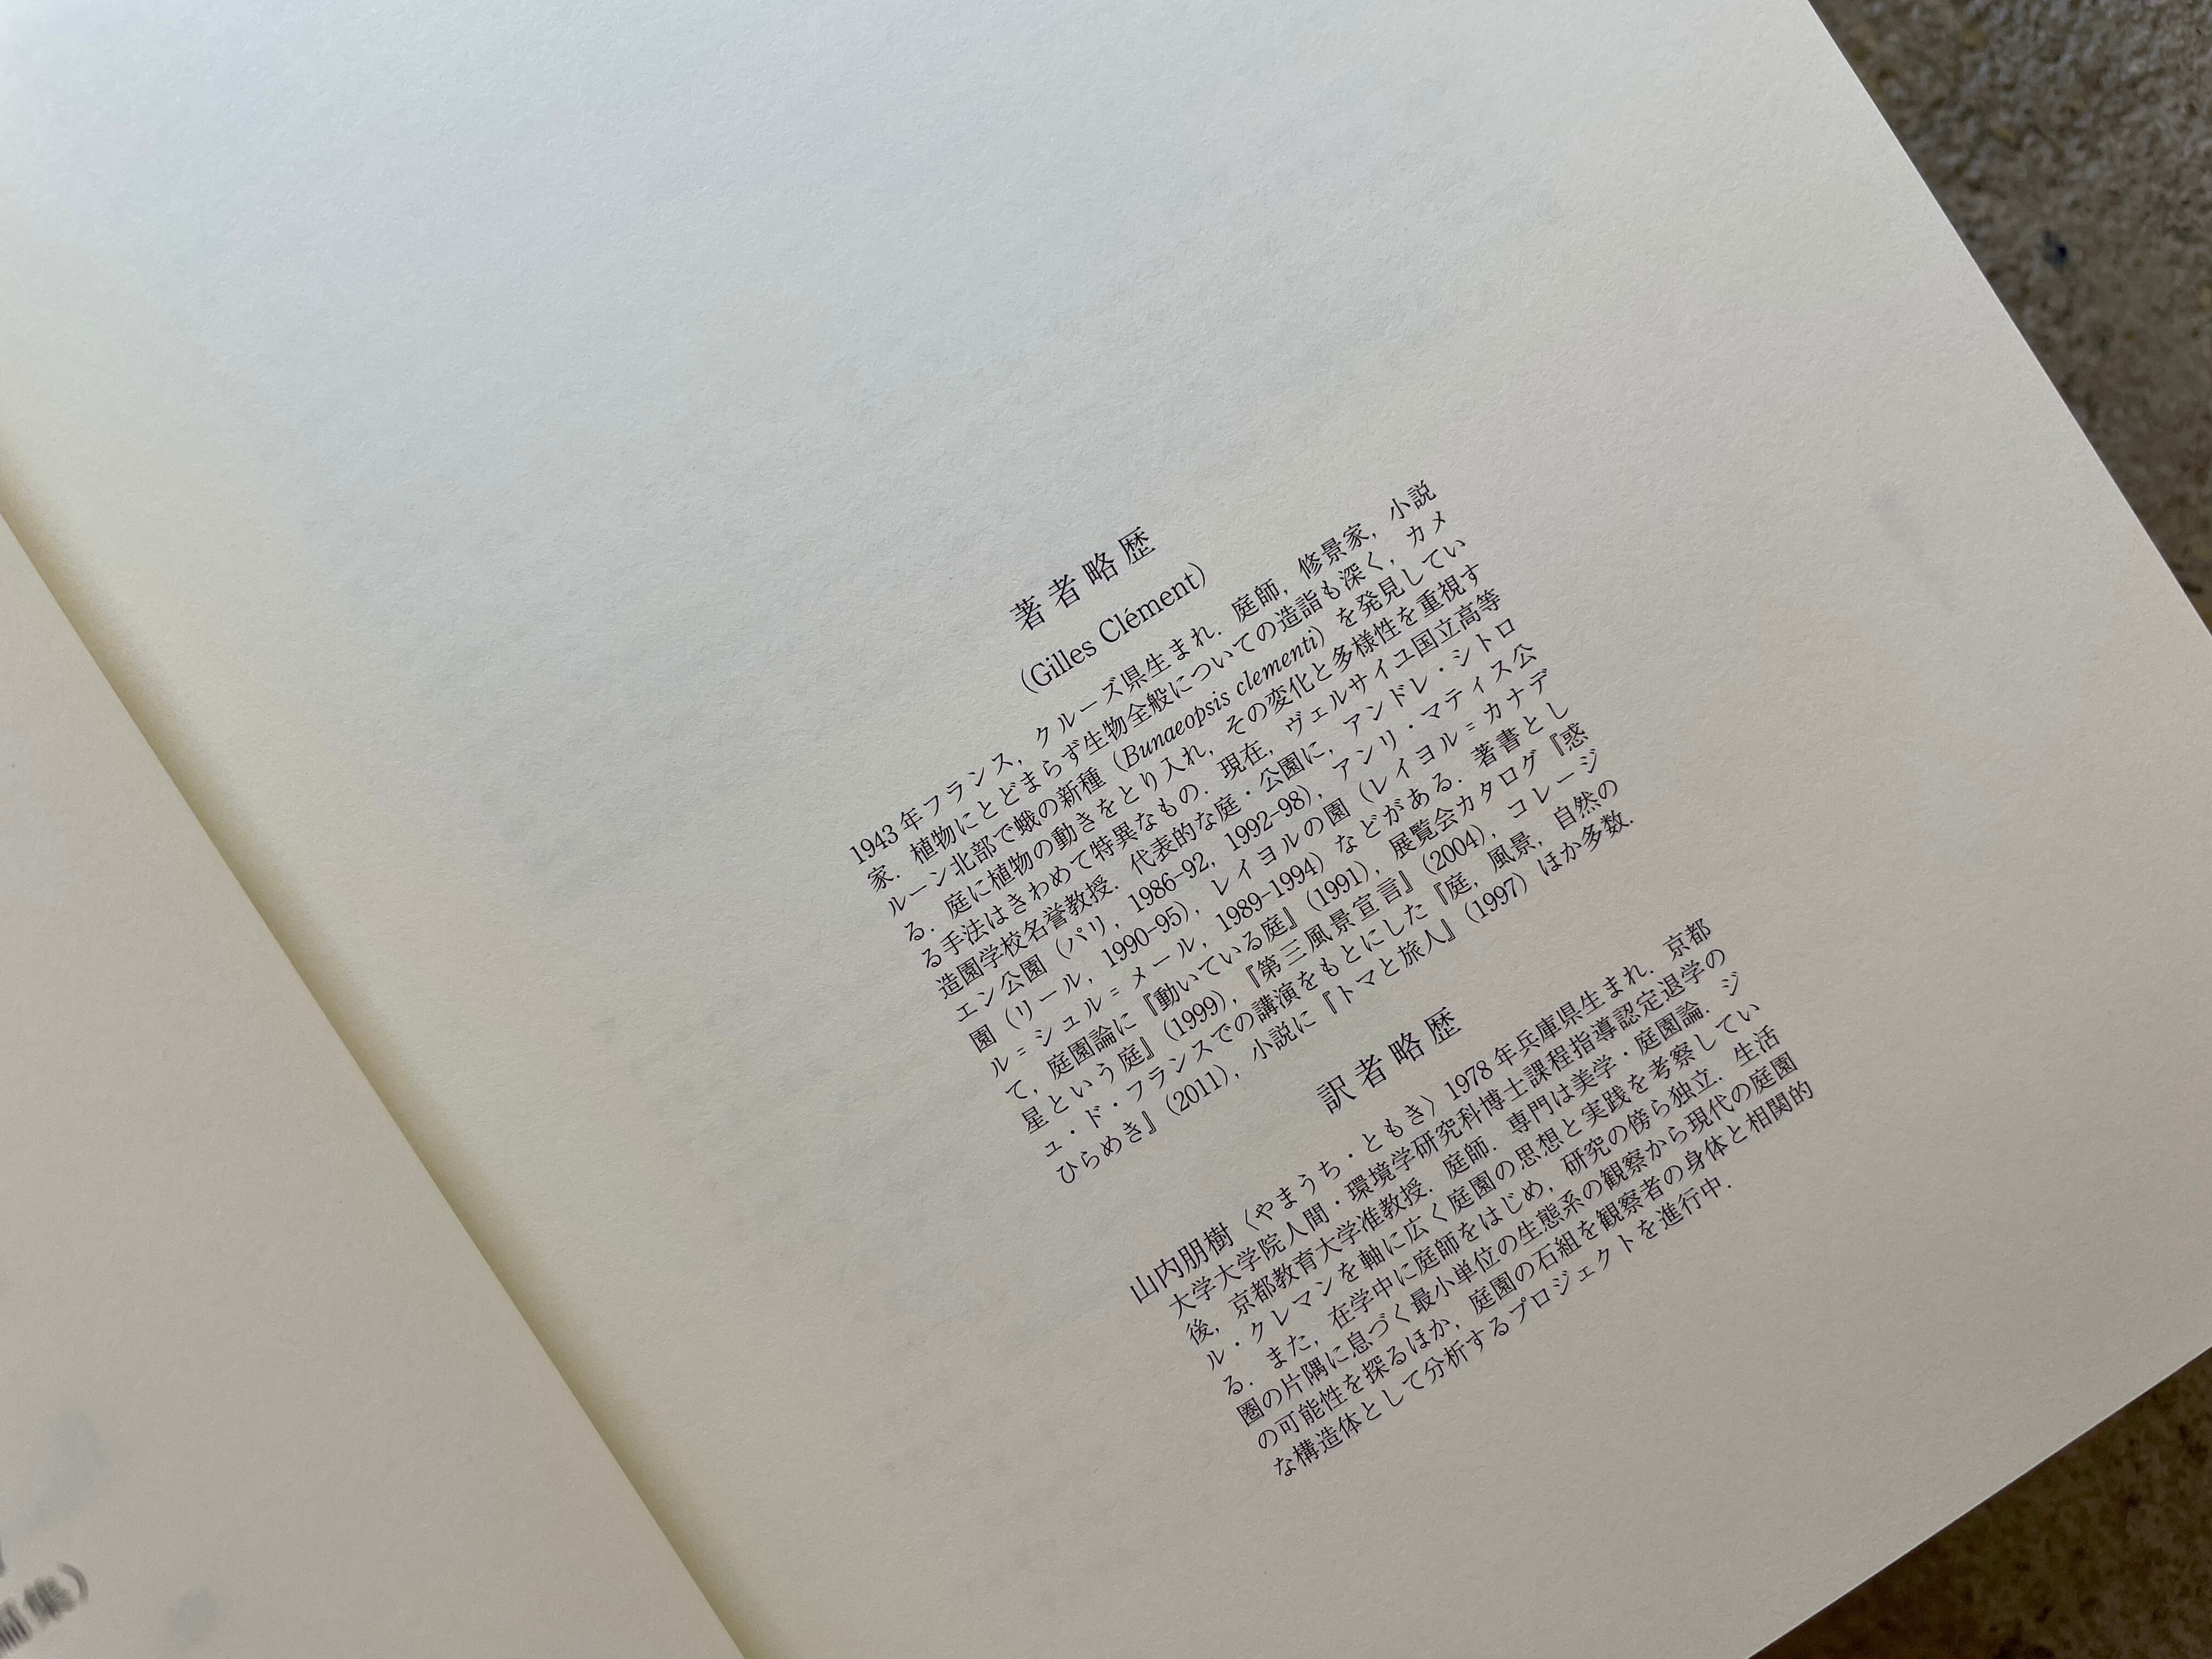 著者略歴
（Gilles Clément）
1943年フランス，クルーズ県生まれ．庭師，修景家，小説
家．植物にとどまらず生物全般についての造詣も深く，カメ
ルーン北部で蛾の新種（Bunaeopsis clementi）を発見してい
る．庭に植物の動きをとり入れ，その変化と多様性を重視す
る手法はきわめて特異なもの．現在，ヴェルサイユ国立高等
造園学校名誉教授．代表的な庭・公園に，アンドレ・シトロ
エン公園（パリ，1986–92，1992–98），アンリ・マティス公
園（リール，1990–95），レイヨルの園（レイヨル＝カナデ
ル＝シュル＝メール，1989–1994）などがある．著書とし
て，庭園論に『動いている庭』（1991），展覧会カタログ『惑
星という庭』（1999），『第三風景宣言』（2004），コレージ
ュ・ド・フランスでの講演をもとにした『庭，風景，自然の
ひらめき』（2011），小説に『トマと旅人』（1997）ほか多数．
訳者略歴
山内朋樹〈やまうち・ともき〉1978年兵庫県生まれ．京都
大学大学院人間・環境学研究科博士課程指導認定退学の
後，京都教育大学准教授．庭師．専門は美学・庭園論．ジ
ル・クレマンを軸に広く庭園の思想と実践を考察してい
る．また，在学中に庭師をはじめ，研究の傍ら独立．生活
圏の片隅に息づく最小単位の生態系の観察から現代の庭園
の可能性を探るほか，庭園の石組を観察者の身体と相関的
な構造体として分析するプロジェクトを進行中．
編集）